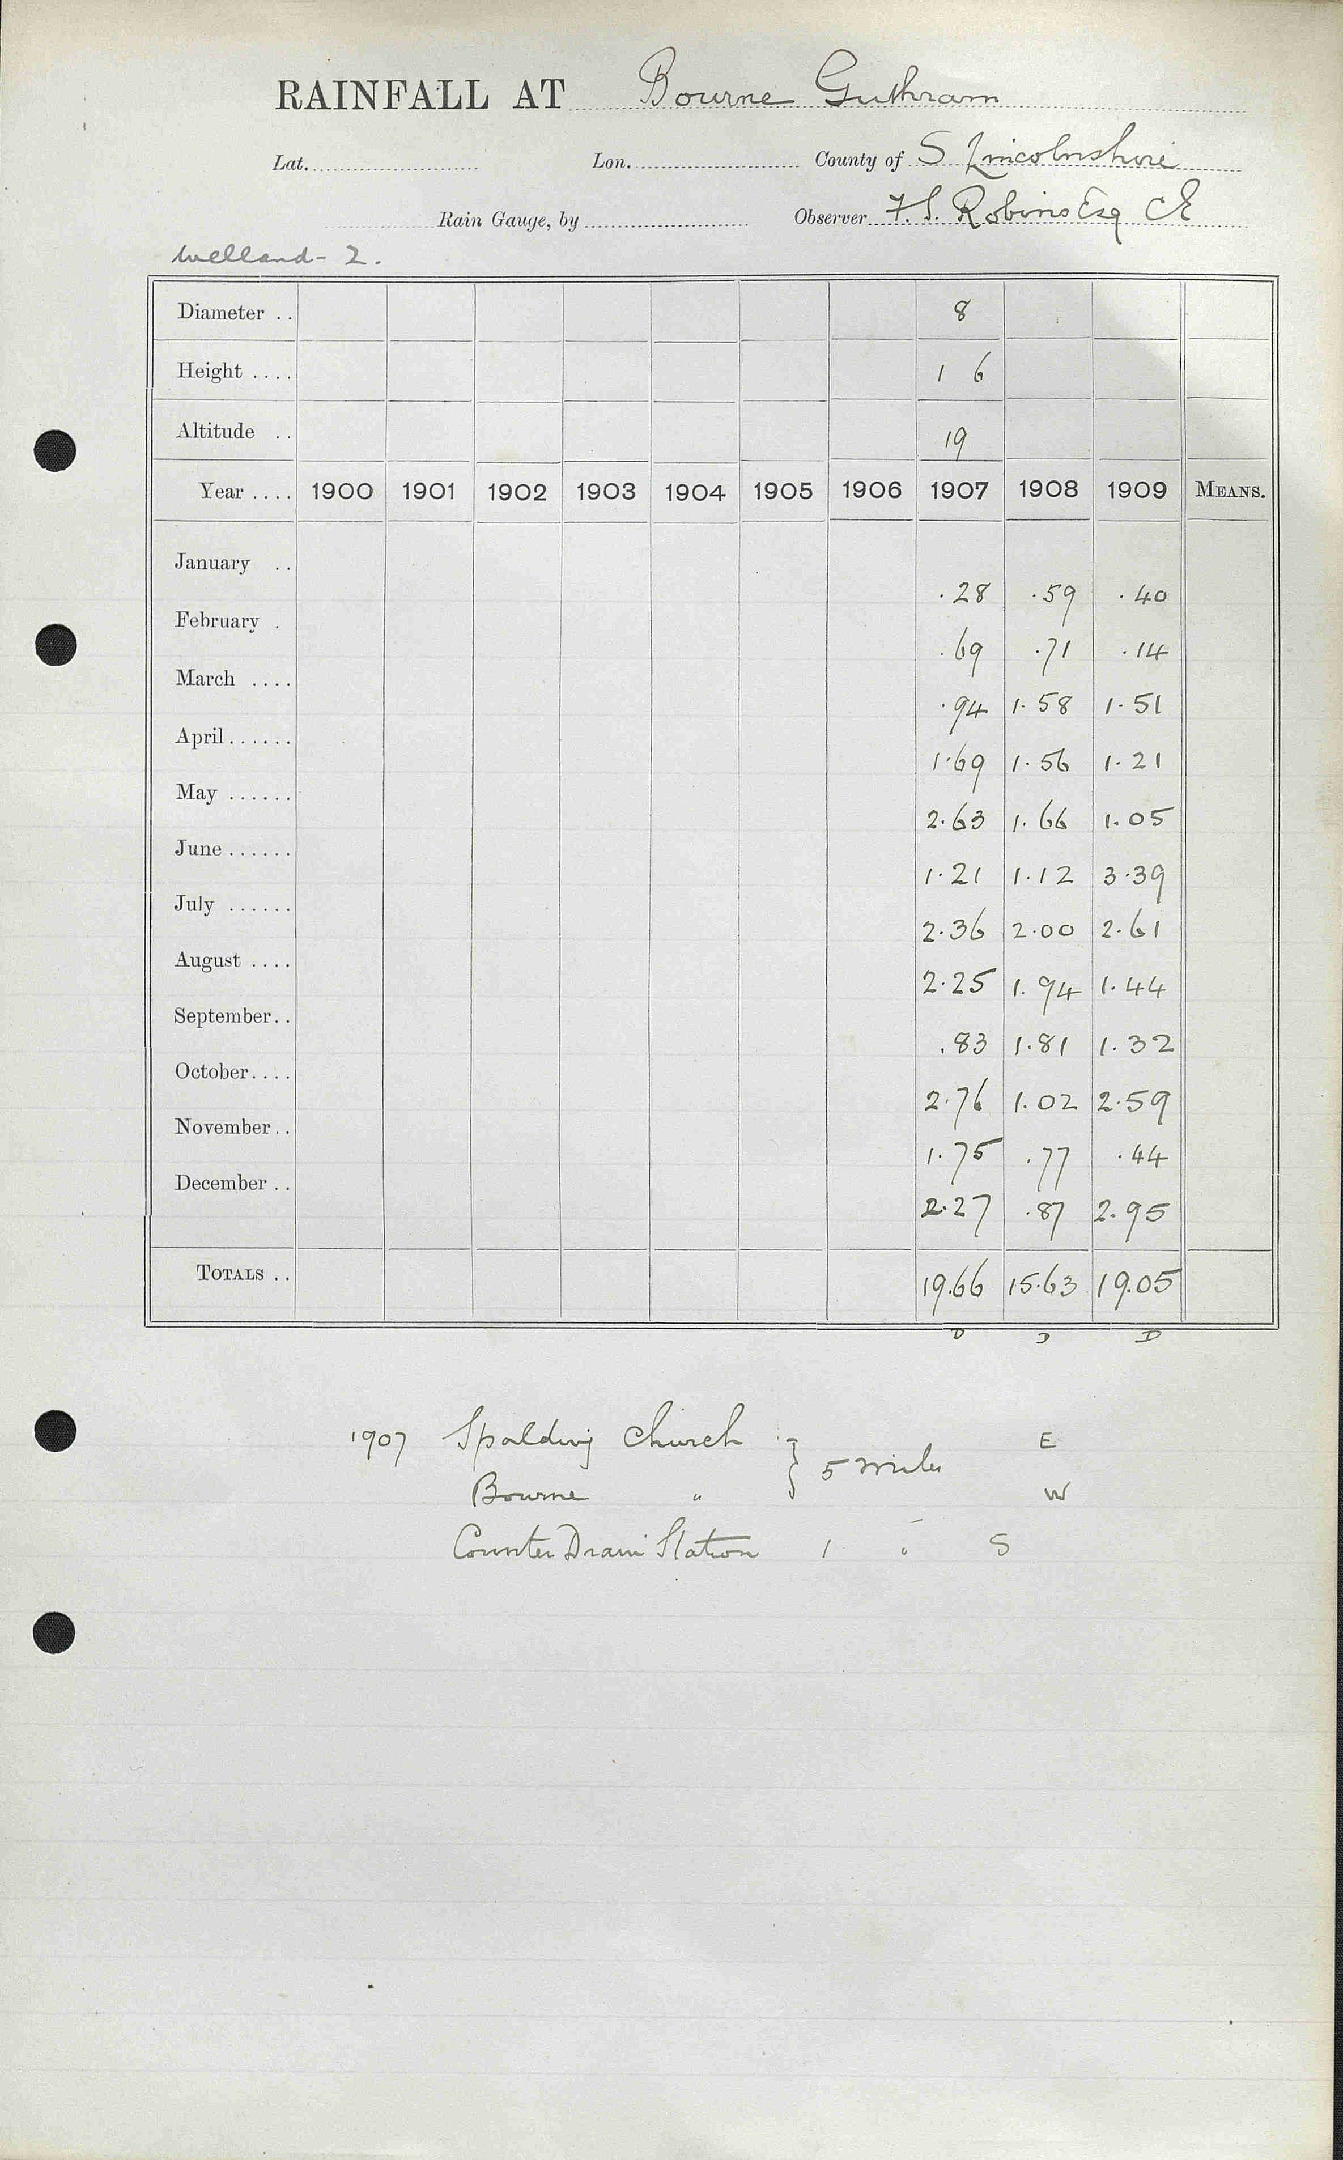 RAINFALL AT Bourne Guthram
Lat. Lon. County of S Lincolnshire
Rain Gauge, by Observer F.S. Robins Esq CE
Welland - 2.
Diameter .. 8
Height .... 1 6
Altitude .. 19
Year .... 1900 1901 1902 1903 1904 1905 1906 1907 1908 1909 MEANS.
January .. .28 .59 .40
February . .69 .71 .14
March .... .94 1.58 1.51
April...... 1.69 1.56 1.21
May ...... 2.63 1.66 1.05
June...... 1.21 1.12 3.39
July ...... 2.36 2.00 2.61
August .... 2.25 1.94 1.44
September.. .83 1.81 1.32
October.... 2.76 1.02 2.59
November.. 1.75 .77 .44
December .. 2.27 .87 2.95
TOTALS .. 19.66 15.63 19.05
D D D
1907 Spalding Church } 5 miles E
Bourne " W
Counter Drain Station 1 " S